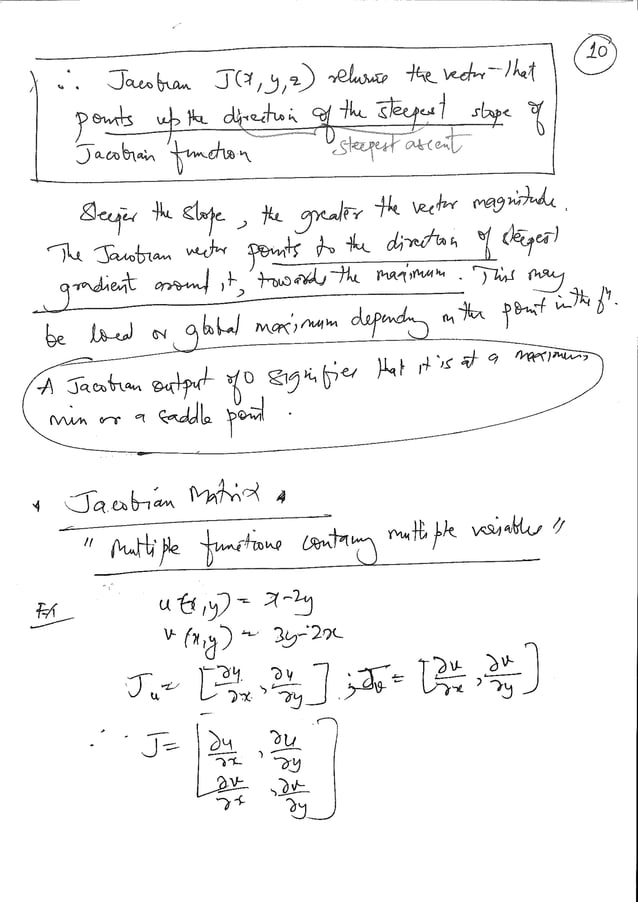 10
∴ Jacobian J(x, y, z) returns the vector that
points up the direction of the steepest slope of
Jacobian function steepest ascent
Steeper the slope, the greater the vector magnitude.
The Jacobian vector points to the direction of steepest
gradient around it, towards the maximum. This may
be local or global maximum depending on the point in the fⁿ.
A Jacobian output of 0 signifies that it is at a maximum,
min or a saddle point.
* Jacobian Matrix
" Multiple functions containg multiple variables "
EX u(x,y) = x-2y
v(x,y) = 3y-2x
J_u = [∂u/∂x, ∂u/∂y] ; J_v = [∂v/∂x, ∂v/∂y]
∴ J = [∂u/∂x, ∂u/∂y
∂v/∂x, ∂v/∂y]